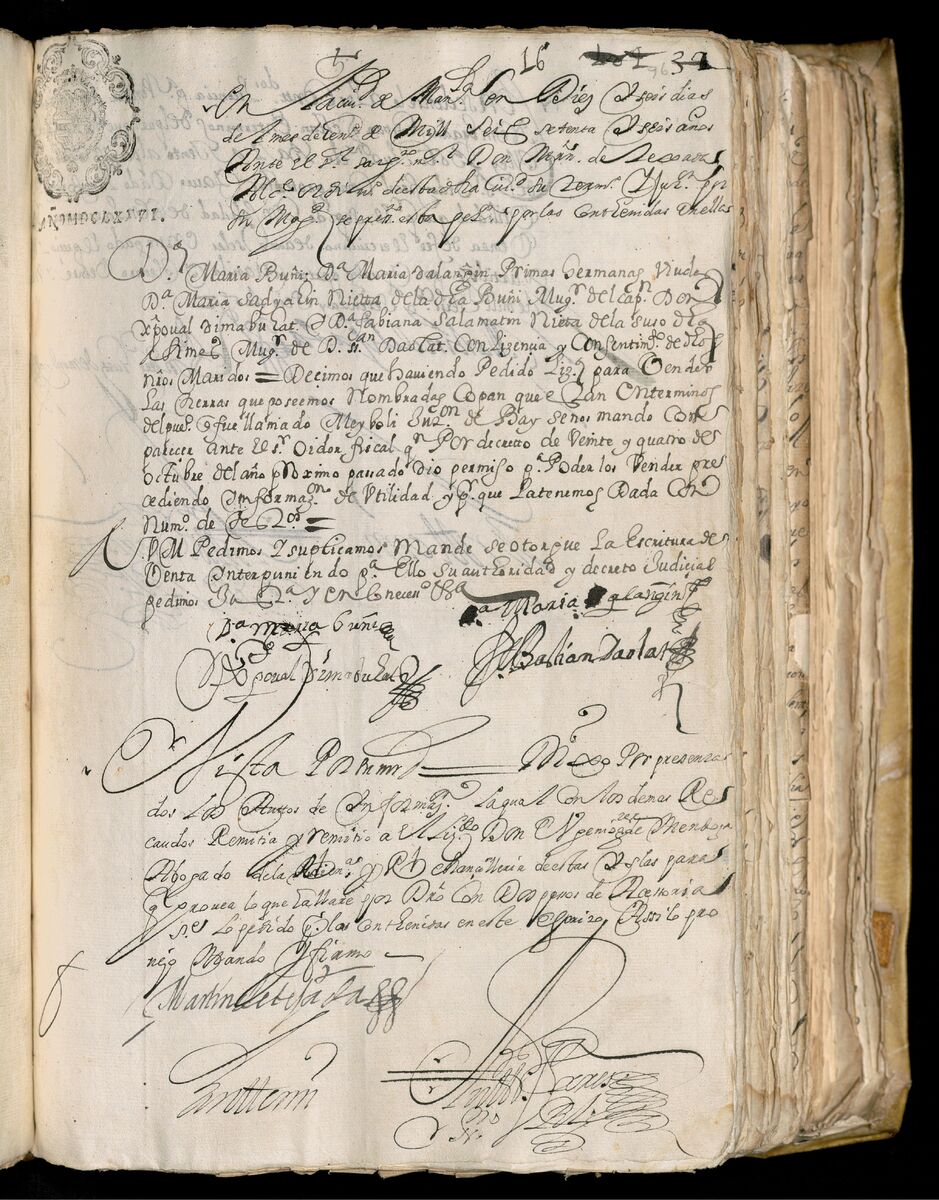 16
32
AÑO MDCLXXVI.
En la ciud. de Man.la en Diez y seis dias
del mes de en.o de Mill Seis.s setenta y seis años
Ante el S.r sarg.to m.or Don M̃rn. de
Alc.e ordin.o de esta d̃ha ciu.d su term.o y jur.on por
su Mag.d se pres.n esta pet.on por las Conthenidas en ella
D.a Maria Buñi; D.a Maria Dalangin Primas hermanas, Viudas
D.a Maria Nietta de la d̃ha Buñi Mug.r del cap.n Don
xp̃oual Dimabulat. y D.a Fabiana Salamatin Nieta de la suso d̃ha
Mug.r de D. Daolat. Con Lizenzia y Consentim.to de d̃hos
nr̃os Maridos = Decimos que haviendo Pedido Liz.a para Vender
Las tierras que poseemos Nombradas Copan que estan En terminos
del pue.o q fue llamado Meyboli Jur.on de Bay se nos mando Com
parecer ante el s.r Oidor fiscal q.n Por decreto de Veinte y quatro de
octubre del año pr̃oximo passado dio permiso p.a Poder los Vender pre
cediendo Informaz.on de Vtilidad y p.r que La tenemos Dada Con
Num.o de =
A V.M Pedimos y suplicamos Mande se otorgue La Escritura de
Venta Interpuniendo p.a Ello su authoridad y decreto Judicial
pedimos Jus.a y en lo necess.o &a
D.a Maria Dalangin
D.a Maria buñi
D. xpoual Dimabulat
D. Sebastian Daolat
Vista Por su mrd = M.do Por presenta
dos los Auttos de Informaz.on la qual con los demas Re
caudos Remitia y remitio a el Liz.do Don Eugenio de Mendoza
Abogado de la R.l Audien.a y R.l chanzilleria de estas Yslas para
q prouea lo que hallare por Dr̃o Con Dos pesos de Acesoria
Lo pedido p.r las Conthenidas en este Assi lo pro
ueio Mando y firmo
Martin de
Ante mi